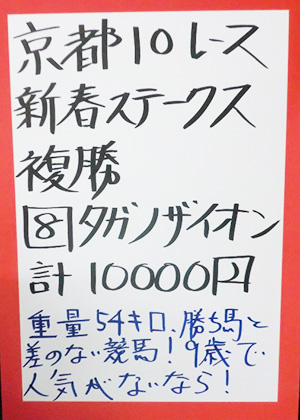 京都10レース
新春ステークス
複勝
⑧タガノザイオン
計10000円
重量54キロ、勝ち馬と
差のない競馬!9歳で
人気がないなら!